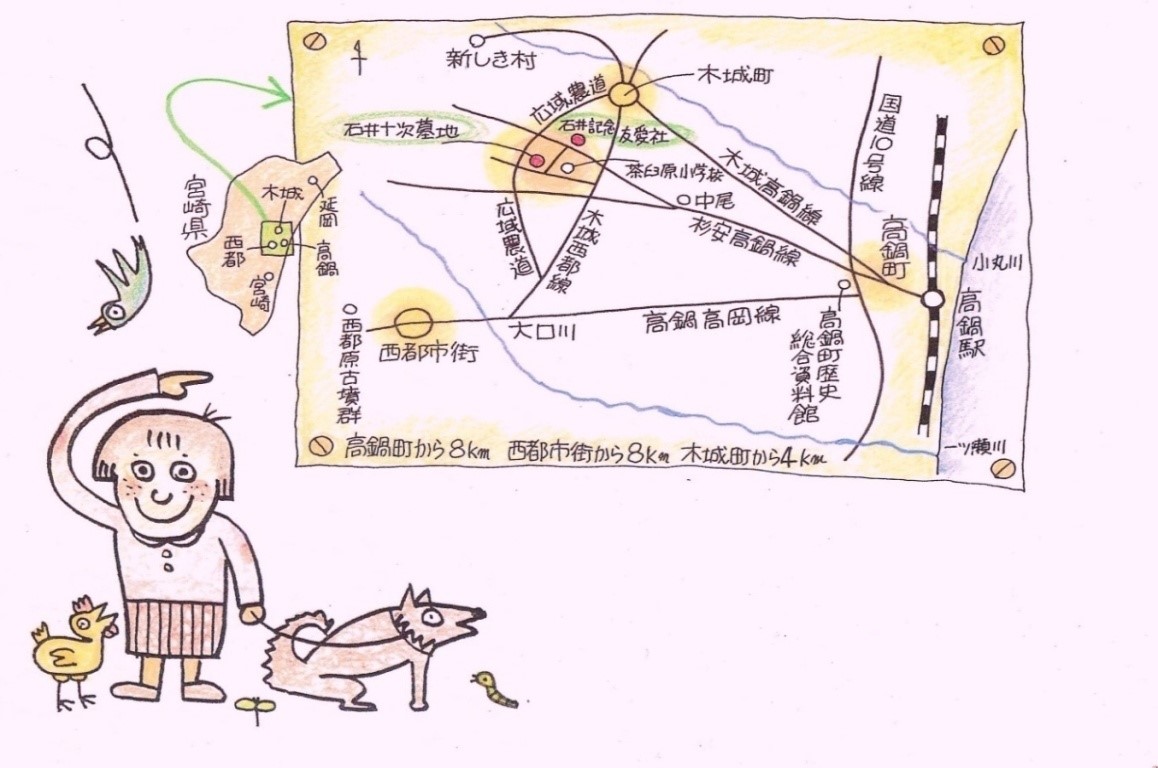 新しき村
木城町
広域農道
石井十次墓地
石井記念友愛社
茶臼原小学校
中尾
木城高鍋線
杉安高鍋線
国道10号線
高鍋町
小丸川
高鍋駅
広域農道
木城西都線
西都原古墳群
西都市街
大口川
高鍋高岡線
高鍋町歴史
総合資料館
一ツ瀬川
高鍋町から8km 西都市街から8km 木城町から4km
宮崎県
木城
延岡
西都
高鍋
宮崎